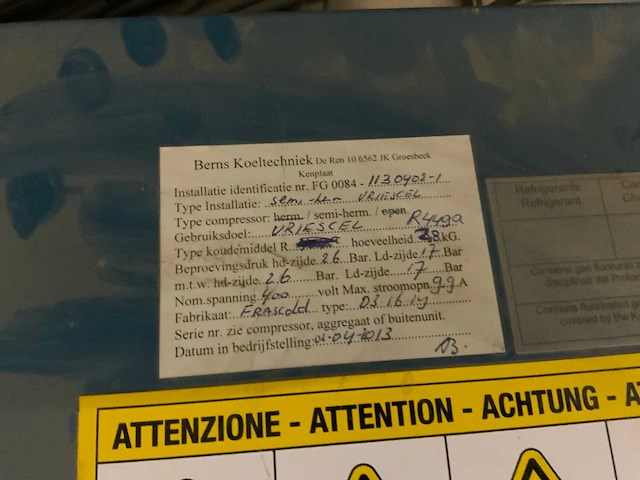 Berns Koeltechniek De Ren 10 6562 JK Groesbeek
Kenplaat
Installatie identificatie nr. FG 0084 - 1130402-1
Type Installatie: semi-her VRIESCEL
Type compressor: herm. / semi-herm. / open
Gebruiksdoel: VRIESCEL R449a
Type koudemiddel R hoeveelheid 3,8 kG.
Beproevingsdruk hd-zijde 26 Bar. Ld-zijde 17 Bar
m.t.w. hd-zijde 26 Bar. Ld-zijde 17 Bar
Nom.spanning 400 volt Max. stroomopn. 9.9 A
Fabrikaat: FRASCOLD type: DS 16 1y
Serie nr. zie compressor, aggregaat of buitenunit.
Datum in bedrijfstelling: 02-04-2013
Refrigerants
Refrigerante
Contains fluorinated
covered by the
ATTENZIONE - ATTENTION - ACHTUNG - A